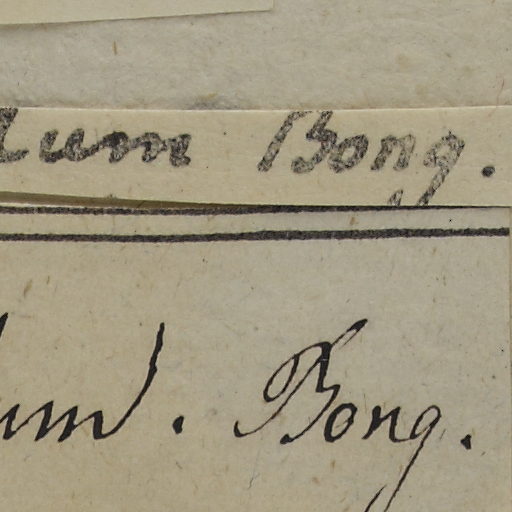 lum Bong.
um. Bong.